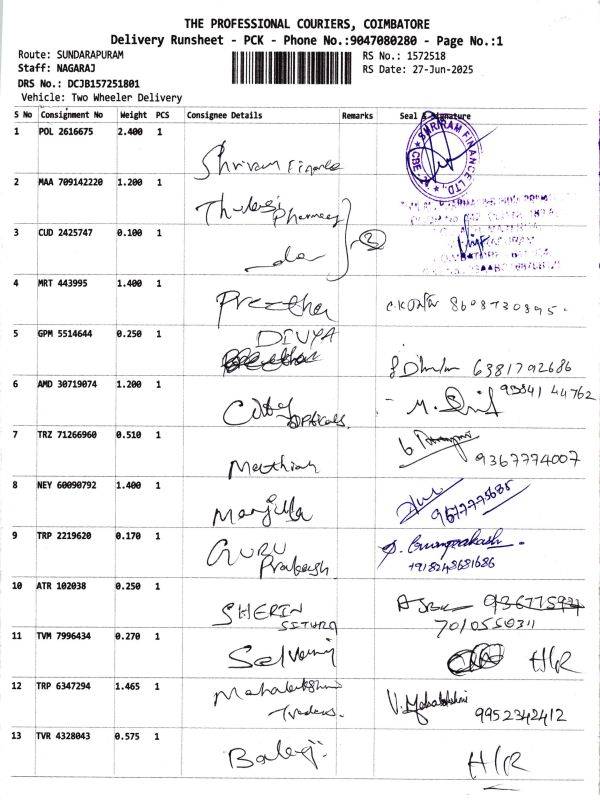 THE PROFESSIONAL COURIERS, COIMBATORE
Delivery Runsheet - PCK - Phone No.:9047080280 - Page No.:1
Route: SUNDARAPURAM
RS No.: 1572518
Staff: NAGARAJ
RS Date: 27-Jun-2025
DRS No.: DCJB157251801
Vehicle: Two Wheeler Delivery
S No Consignment No Weight PCS Consignee Details Remarks Seal & Signature
1 POL 2616675 2.400 1
Shriram Finance
SHRIRAM FINANCE LTD.
2 MAA 709142220 1.200 1
Thulasi Pharmacy
3 CUD 2425747 0.100 1
do
2
4 MRT 443995 1.400 1
Preetha 8608730895.
5 GPM 5514644 0.250 1
DIVYA
6381792686
6 AMD 30719074 1.200 1
95841 44762
City Opticals.
7 TRZ 71266960 0.510 1
Mathiah
9367774007
8 NEY 60090792 1.400 1
Manjula
9677775685
9 TRP 2219620 0.170 1
GURU Prakash. S. Guruprakash.
+918248681686
10 ATR 102038 0.250 1
SHERIN
7010550311
11 TVM 7996434 0.270 1
Selvaraj H/R
12 TRP 6347294 1.465 1
Mahalakshmi V. Mahalakshmi
Traders. 9952342412
13 TVR 4328043 0.575 1
Balaji H/R